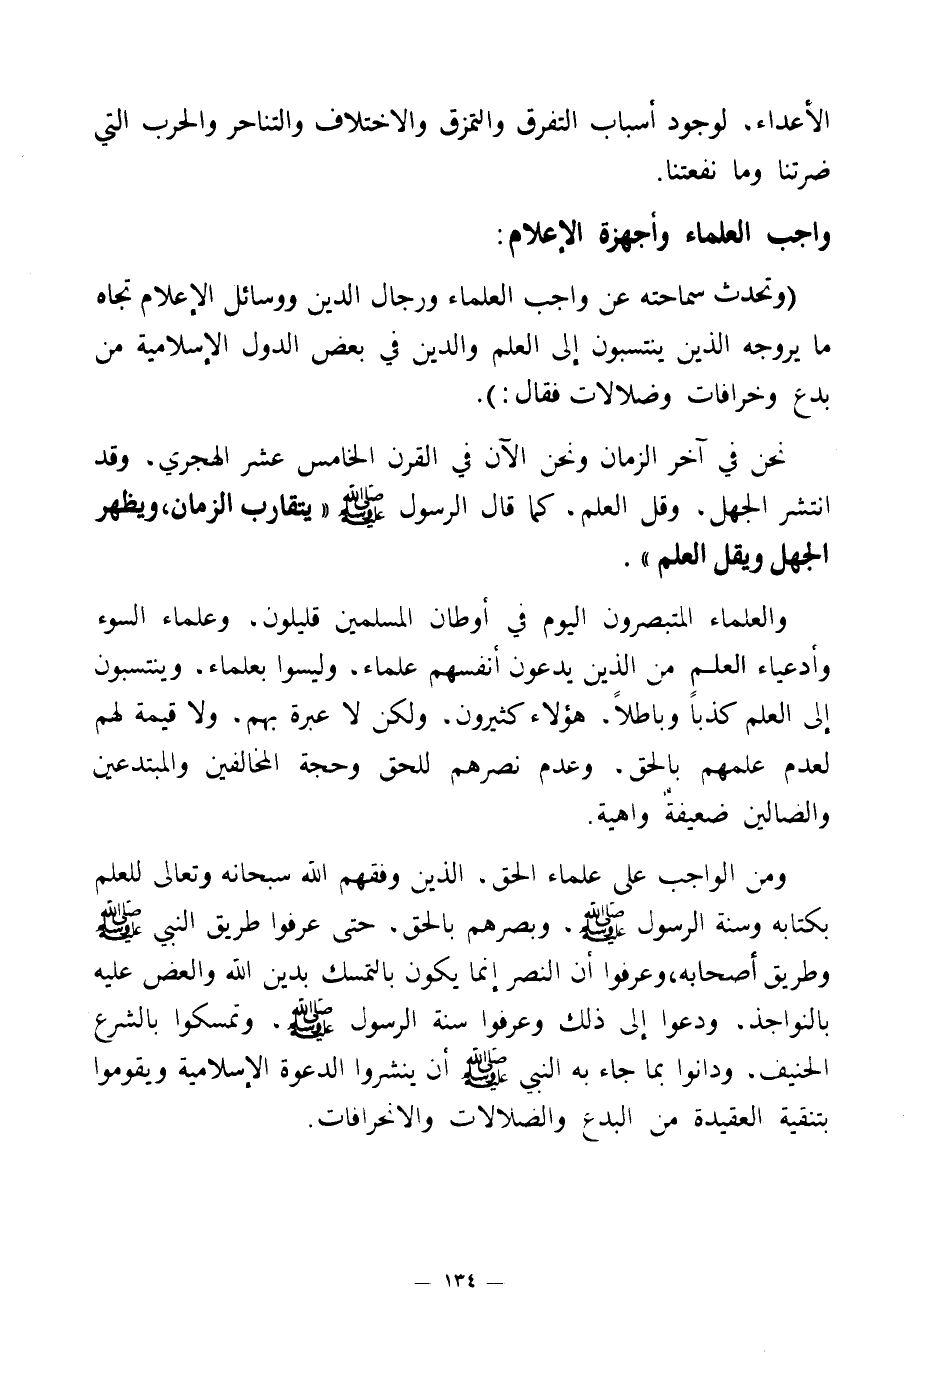 الأعداء. لوجود أسباب التفرق والتمزق والاختلاف والتناحر والحرب التي
ضرتنا وما نفعتنا.
واجب العلماء وأجهزة الإعلام:
(وتحدث سماحته عن واجب العلماء ورجال الدين ووسائل الإعلام تجاه
ما يروجه الذين ينتسبون إلى العلم والدين في بعض الدول الإسلامية من
بدع وخرافات وضلالات فقال:).
نحن في آخر الزمان ونحن الآن في القرن الخامس عشر الهجري. وقد
انتشر الجهل. وقل العلم. كما قال الرسول ﷺ «يتقارب الزمان،ويظهر
الجهل ويقل العلم».
والعلماء المتبصرون اليوم في أوطان المسلمين قليلون. وعلماء السوء
وأدعياء العلـم من الذين يدعون أنفسهم علماء. وليسوا بعلماء. وينتسبون
إلى العلم كذباً وباطلاً. هؤلاء كثيرون. ولكن لا عبرة بهم. ولا قيمة لهم
لعدم علمهم بالحق. وعدم نصرهم للحق وحجة المخالفين والمبتدعين
والضالين ضعيفةٌ واهية.
ومن الواجب على علماء الحق. الذين وفقهم الله سبحانه وتعالى للعلم
بكتابه وسنة الرسول ﷺ. وبصرهم بالحق. حتى عرفوا طريق النبي ﷺ
وطريق أصحابه،وعرفوا أن النصر إنما يكون بالتمسك بدين الله والعض عليه
بالنواجذ. ودعوا إلى ذلك وعرفوا سنة الرسول ﷺ. وتمسكوا بالشرع
الحنيف. ودانوا بما جاء به النبي ﷺ أن ينشروا الدعوة الإسلامية ويقوموا
بتنقية العقيدة من البدع والضلالات والانحرافات.
— ١٣٤ —